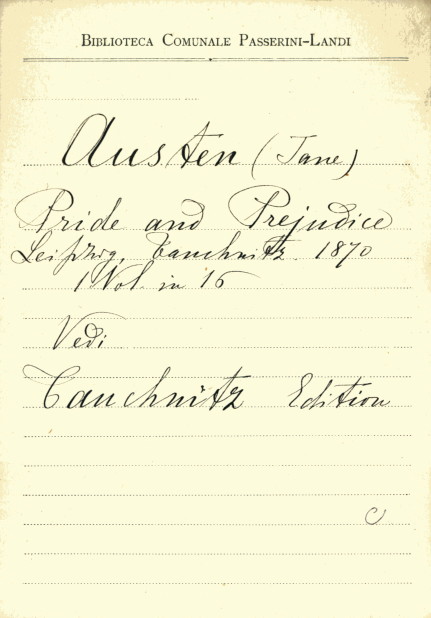 BIBLIOTECA COMUNALE PASSERINI-LANDI
Austen (Jane)
Pride and Prejudice
Leipzig, Tauchnitz. 1870
1 Vol. in 16
Vedi
Tauchnitz Edition
C